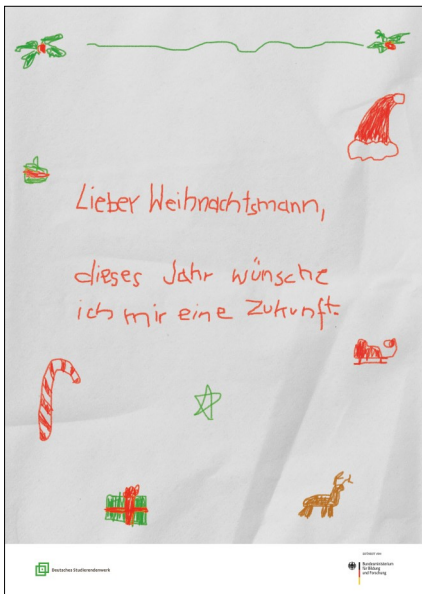 Lieber Weihnachtsmann,
dieses Jahr wünsche
ich mir eine Zukunft.
Deutsches Studierendenwerk
GEFÖRDERT VOM
Bundesministerium
für Bildung
und Forschung